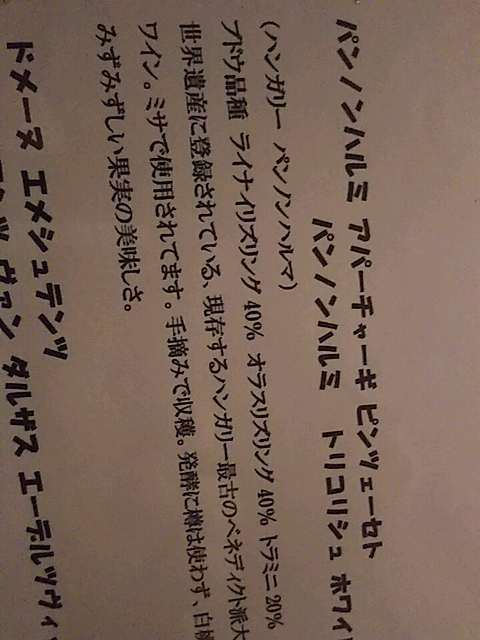 パンノンハルミ アパーチャーギ ピンツェーセト
パンノンハルミ トリコリシュ ホワイ
(ハンガリー パンノンハルマ)
ブドウ品種 ライナイリズリング 40% オラスリズリング 40% トラミニ 20%
世界遺産に登録されている、現存するハンガリー最古のベネディクト派大
ワイン。ミサで使用されてます。手摘みで収穫。発酵に樽は使わず、白
みずみずしい果実の美味しさ。
ドメーヌ エメシュテンツ
ヴァン ダルザス エーデルツヴィ